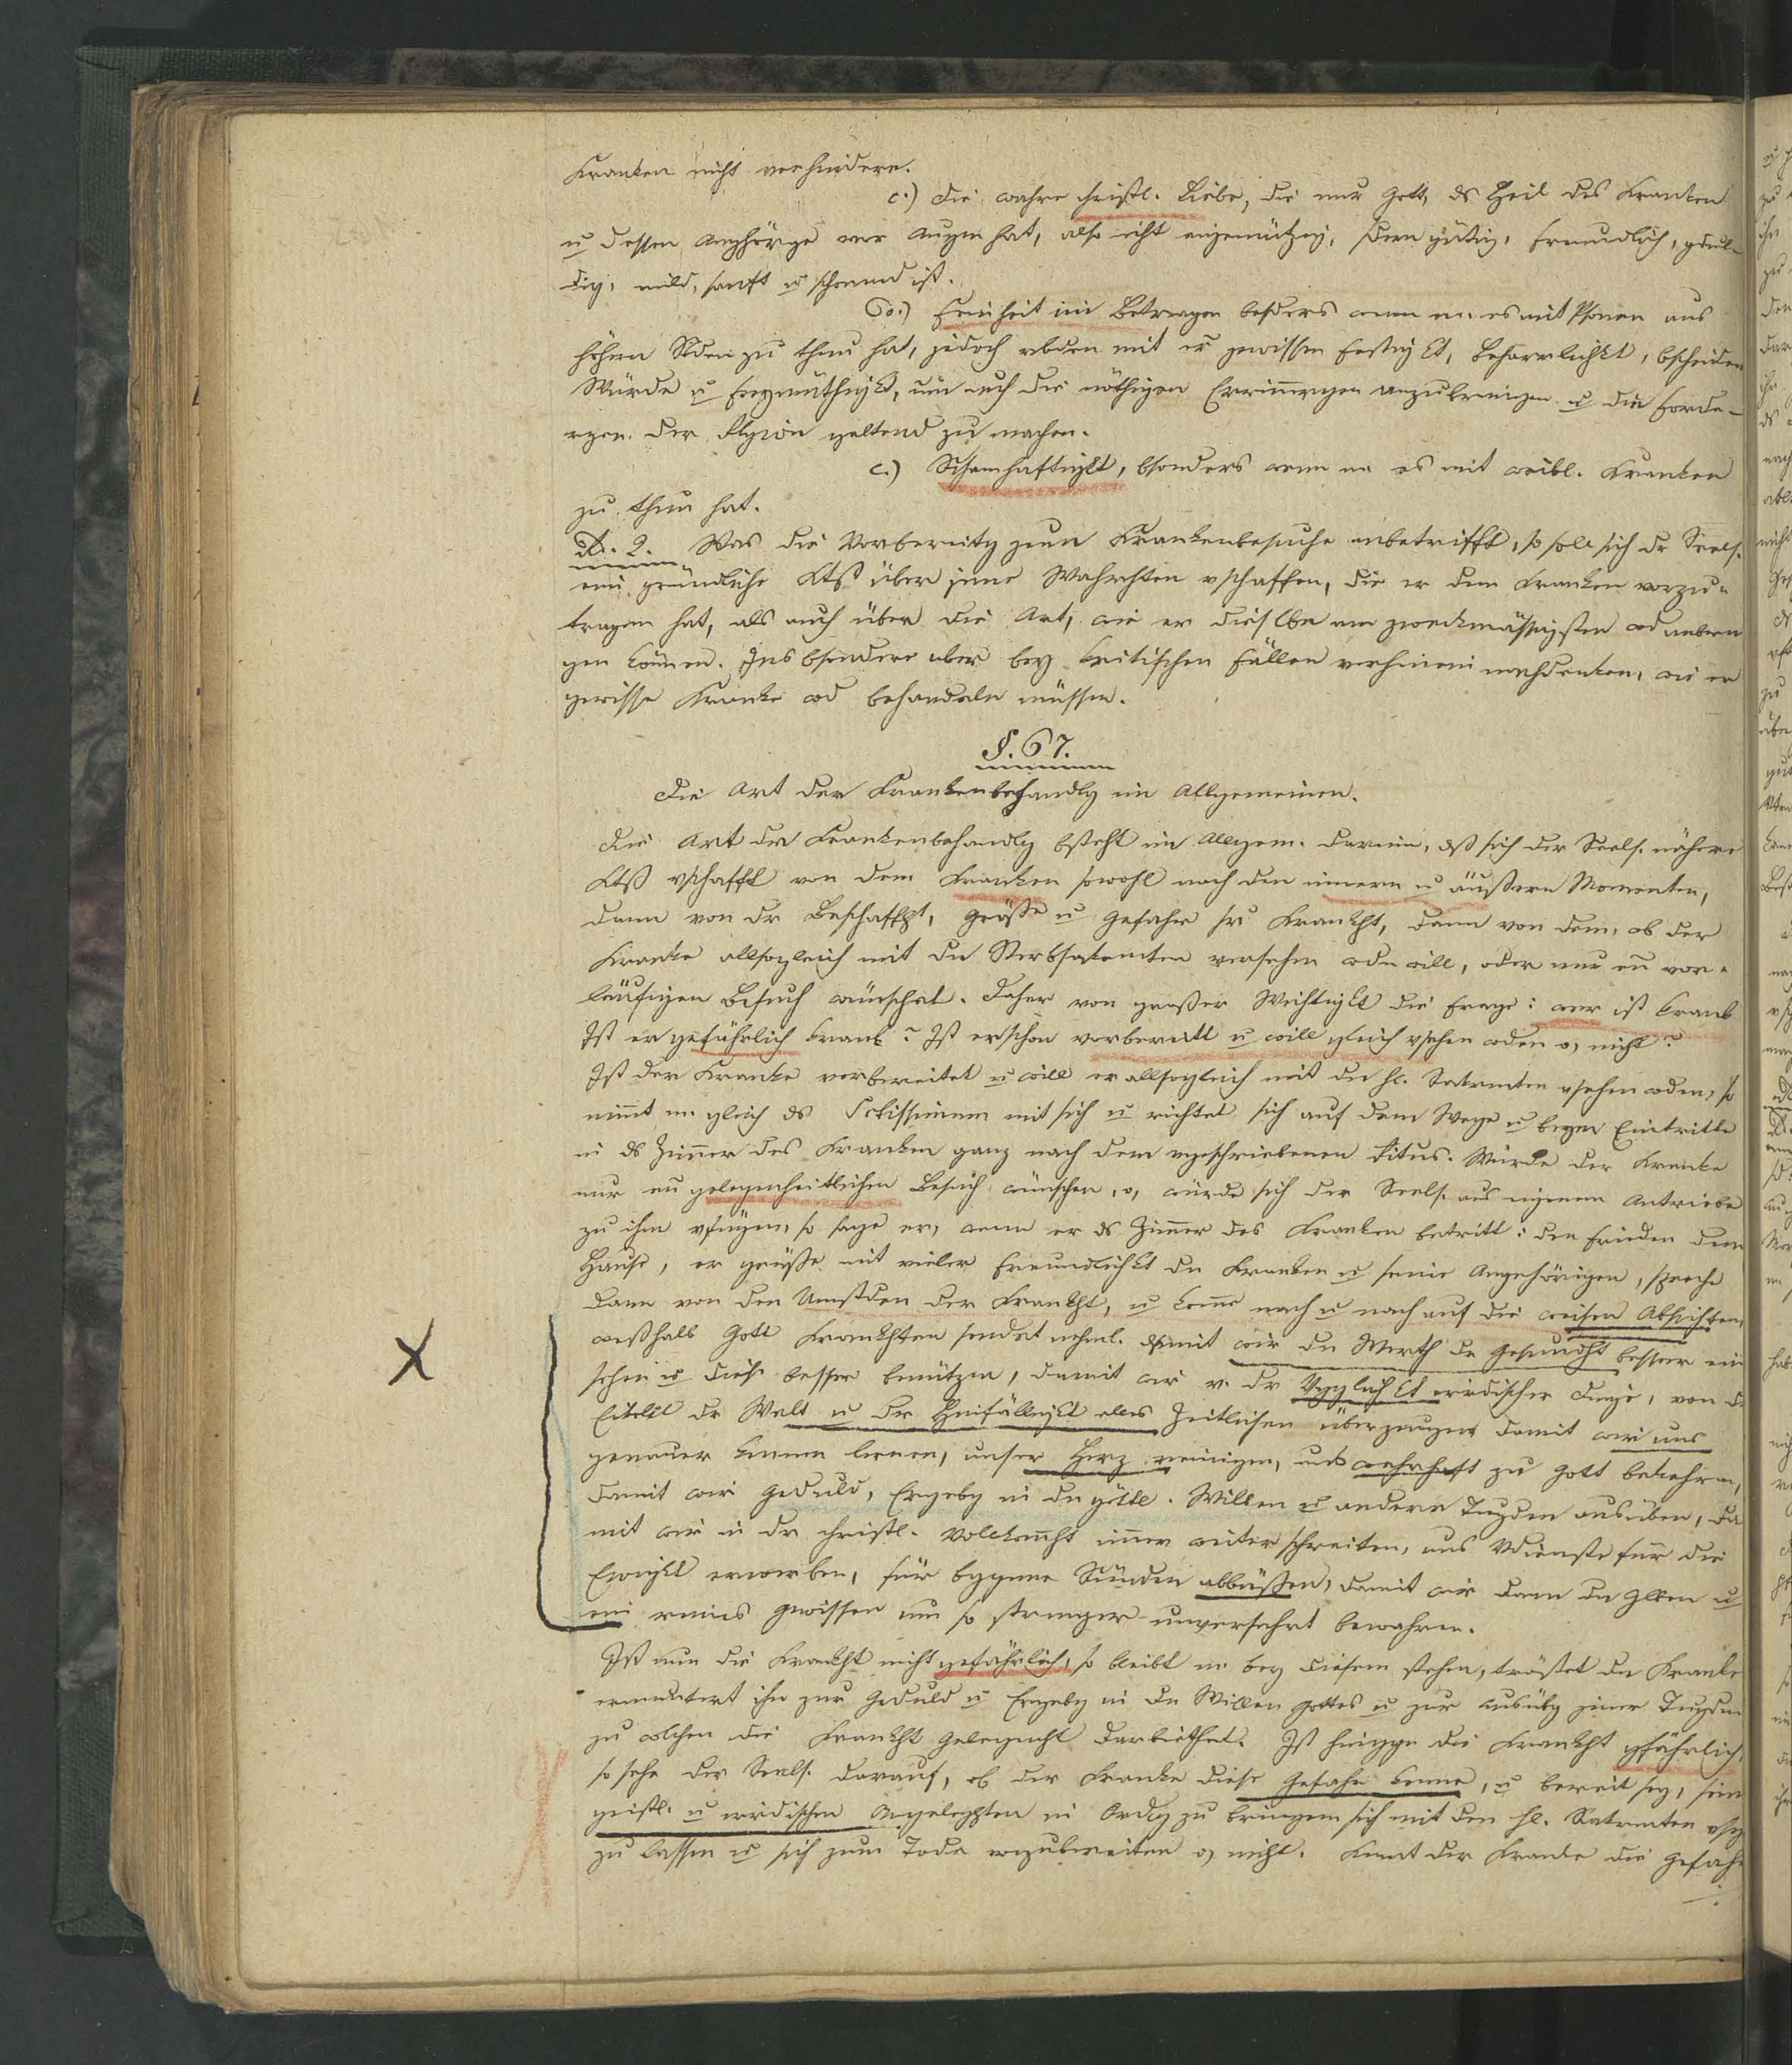 Kranken nicht verhindere.
c.) Die wahre christl. Liebe, die nur Gott, ds Heil des Kranken
u dessen Anghörige vor Augen hat, also nicht eigennützig, sdern gütig, freundlich, gdul-
dig, mild, sanft u schonend ist.
d.) Feinheit im Betragen besders wenn m. es mit Psonen aus
höhern Stden zu thun hat, jedoch vbden mit er gewissen Festigkt, Beharrlichkt, bscheiden
Würde u Freymüthigkt, um auch die nöthigen Erinnrgen anzubringen u die Forde-
rgen der Rlgion geltend zu machen.
e.) Schamhaftigkt, bsonders wenn m es mit weibl. Kranken
zu thun hat.
Ad. 2. Was die Vorbereitg zum Krankenbesuche anbetrifft, so soll sich dr Seels.
eine gründliche Ktß über jene Wahrhten vschaffen, die er dem Kranken vorzu-
tragen hat, als auch über die Art, wie er dieselbe am zweckmässigsten wd anbrin
gen können. Ins bsondere aber bey kritischen Fällen vorhinein nachdenken, wie er
gewisse Kranke wd behandeln müssen.
§. 67.
Die Art der Krankenbehandlg im Allgemeinen.
Die Art der Krankenbehandlg bsteht im Allgem. darin, dß sich der Seels. nähere
Ktß vschafft von dem Kranken sowohl nach den innern u äußern Momenten,
dann von dr Beschaffht, Größe u Gefahr sr Krankht, dann von dem, ob der
Kranke allsogleich mit dn Sterbsakrmten versehen wdn will, oder nur en vor-
läufigen Besuch wünschet. Daher von großer Wichtigkt die Frage: wer ist krank
Ist er gefährlich krank? Ist er schon vorbereitt u will gleich vsehen wden o, nicht?
Ist der Kranke vorbereitet u will er allsogleich mit dn hl. Sakrmten vsehen wden, so
nimmt m. gleich ds Sctissimum mit sich u richtet sich auf dem Wege u beym Eintritte
in ds Zimmer des Kranken ganz nach dem vgeschriebenen Ritus. Würde der Kranke
nur en gelegenheitlichen Besuch wünschen, o, würde sich der Seels. aus eigenem Antriebe
zu ihm vfügen, so sage er, wenn er ds Zimmer des Kranken betritt: den Frieden dem
Hause, er grüße mit vieler Freundlichkt dn Kranken u seine Angehörigen, spreche
dann von den Umstden der Krankht, u komme nach u nach auf die weisen Absichten,
weßhalb Gott Krankhten sendet nehml. damit wir dn Werth dr Gesundht besser ein
sehen u diese besser benützen, damit wir v. dr Vgglichkt irdischer Dinge, von d
Eitelkt dr Welt u der Hinfälligkt alles Zeitlichen überzeugen damit wir uns
genauer kennen lernen, unser Herz reinigen, uns wahrhaft zu Gott bekehren,
damit wir Geduld, Ergebg in dn göttl. Willen u andere Tugden ausüben, da
mit wir in dr christl. Vollkommht immer weiter schreiten, uns Vdienste für die
Ewigkt erwerben, für bggene Sünden abbüßen, damit wir dann dn Glben u
ein reines Gewissen um so strenger unversehrt bewahren.
Ist nun die Krankht nicht gefährlich, so bleibt m bey diesem stehen, tröstet dn Kranke
ermuntert ihn zur Geduld u Ergebg in dn Willen Gottes u zur Ausübg jener Tugden
zu wlchen die Krankht Gelegenht darbiethet. Ist hinggen die Krankht gfährlich,
so sehe der Seels. darauf, ob der Kranke diese Gefahr kenne, u bereit sey, sein
geistl. u irdischen Angelegten in Ordg zu bringen sich mit den hl. Sakrmten vseh
zu lassen u sich zum Tode vorzubereiten o, nicht. Kennt der Kranke die Gefahr